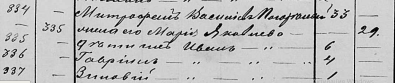 334 Митрофанъ Васильевъ 33
335 жена его Марія Яковлева 29.
335 дѣти ихъ Иванъ " " 6
336 Гавріилъ " " 4
337 Зиновій " " 1